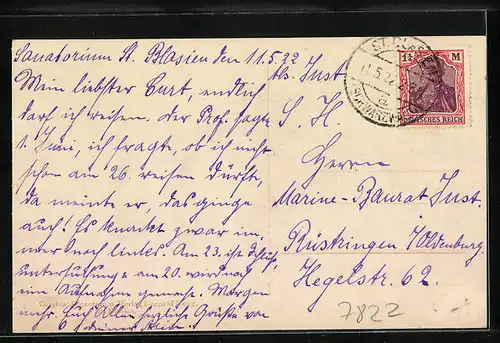 Sanatorium St. Blasien den 11.5.22
Mein liebster Curt, endlich
darf ich reisen. Der Prof. sagte
1. Juni, ich fragte, ob ich nicht
schon am 26. reisen dürfte,
da meinte er, das ginge
auch! Es knackt zwar im-
mer noch links. Am 23. ist Schluß-
untersuchung & am 20. wird noch
ein Aufnahm gemacht. Morgen
mehr. Euch Allen herzliche Grüße von
Deiner
Abs. Just
S. H.
Herrn
Marine-Baurat Just.
Rüstringen i/Oldenburg
Hegelstr. 62.
7822
ST. BLASIEN
(SCHWARZW
1¼ M
DEUTSCHES REICH